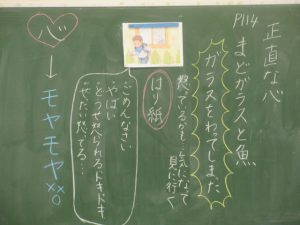 P114
正直な心
まどガラスと魚
ガラスをわってしまった
はり紙
怒ってるかな…気になって
見に行く
ごめんなさい
やばい
どうせ怒られる ドキドキ
ぜったい怒ってる…
心
↓
モヤモヤ
××○